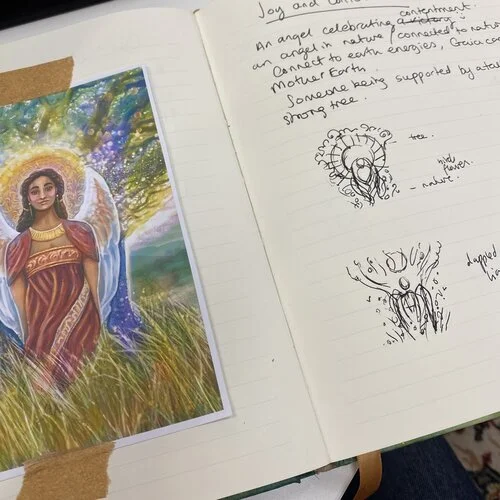 Joy and
contentment.
An angel celebrating a victory
an angel in nature / connected to natur
Connect to earth energies, Gaia
Mother Earth.
Someone being supported by a
strong tree.
tree.
flower.
nature.
dappled